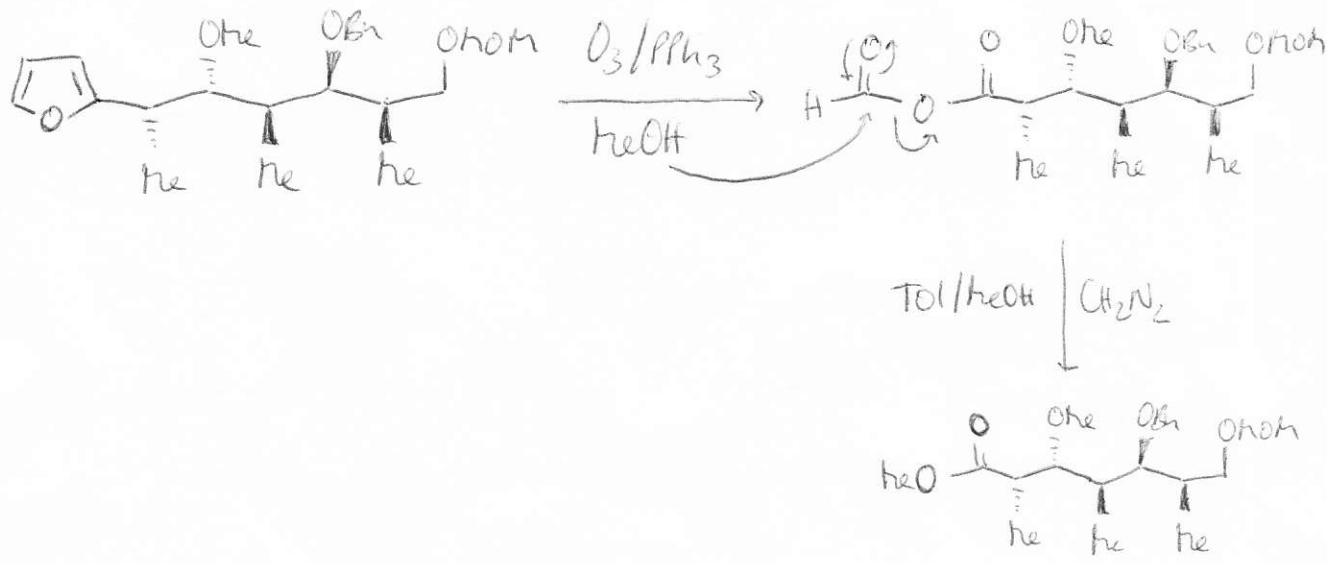 OMe OBn OMOM
O
Me Me Me
O₃/PPh₃
MeOH
O O OMe OBn OMOM
H O
Me Me Me
Tol/MeOH CH₂N₂
O OMe OBn OMOM
MeO
Me Me Me